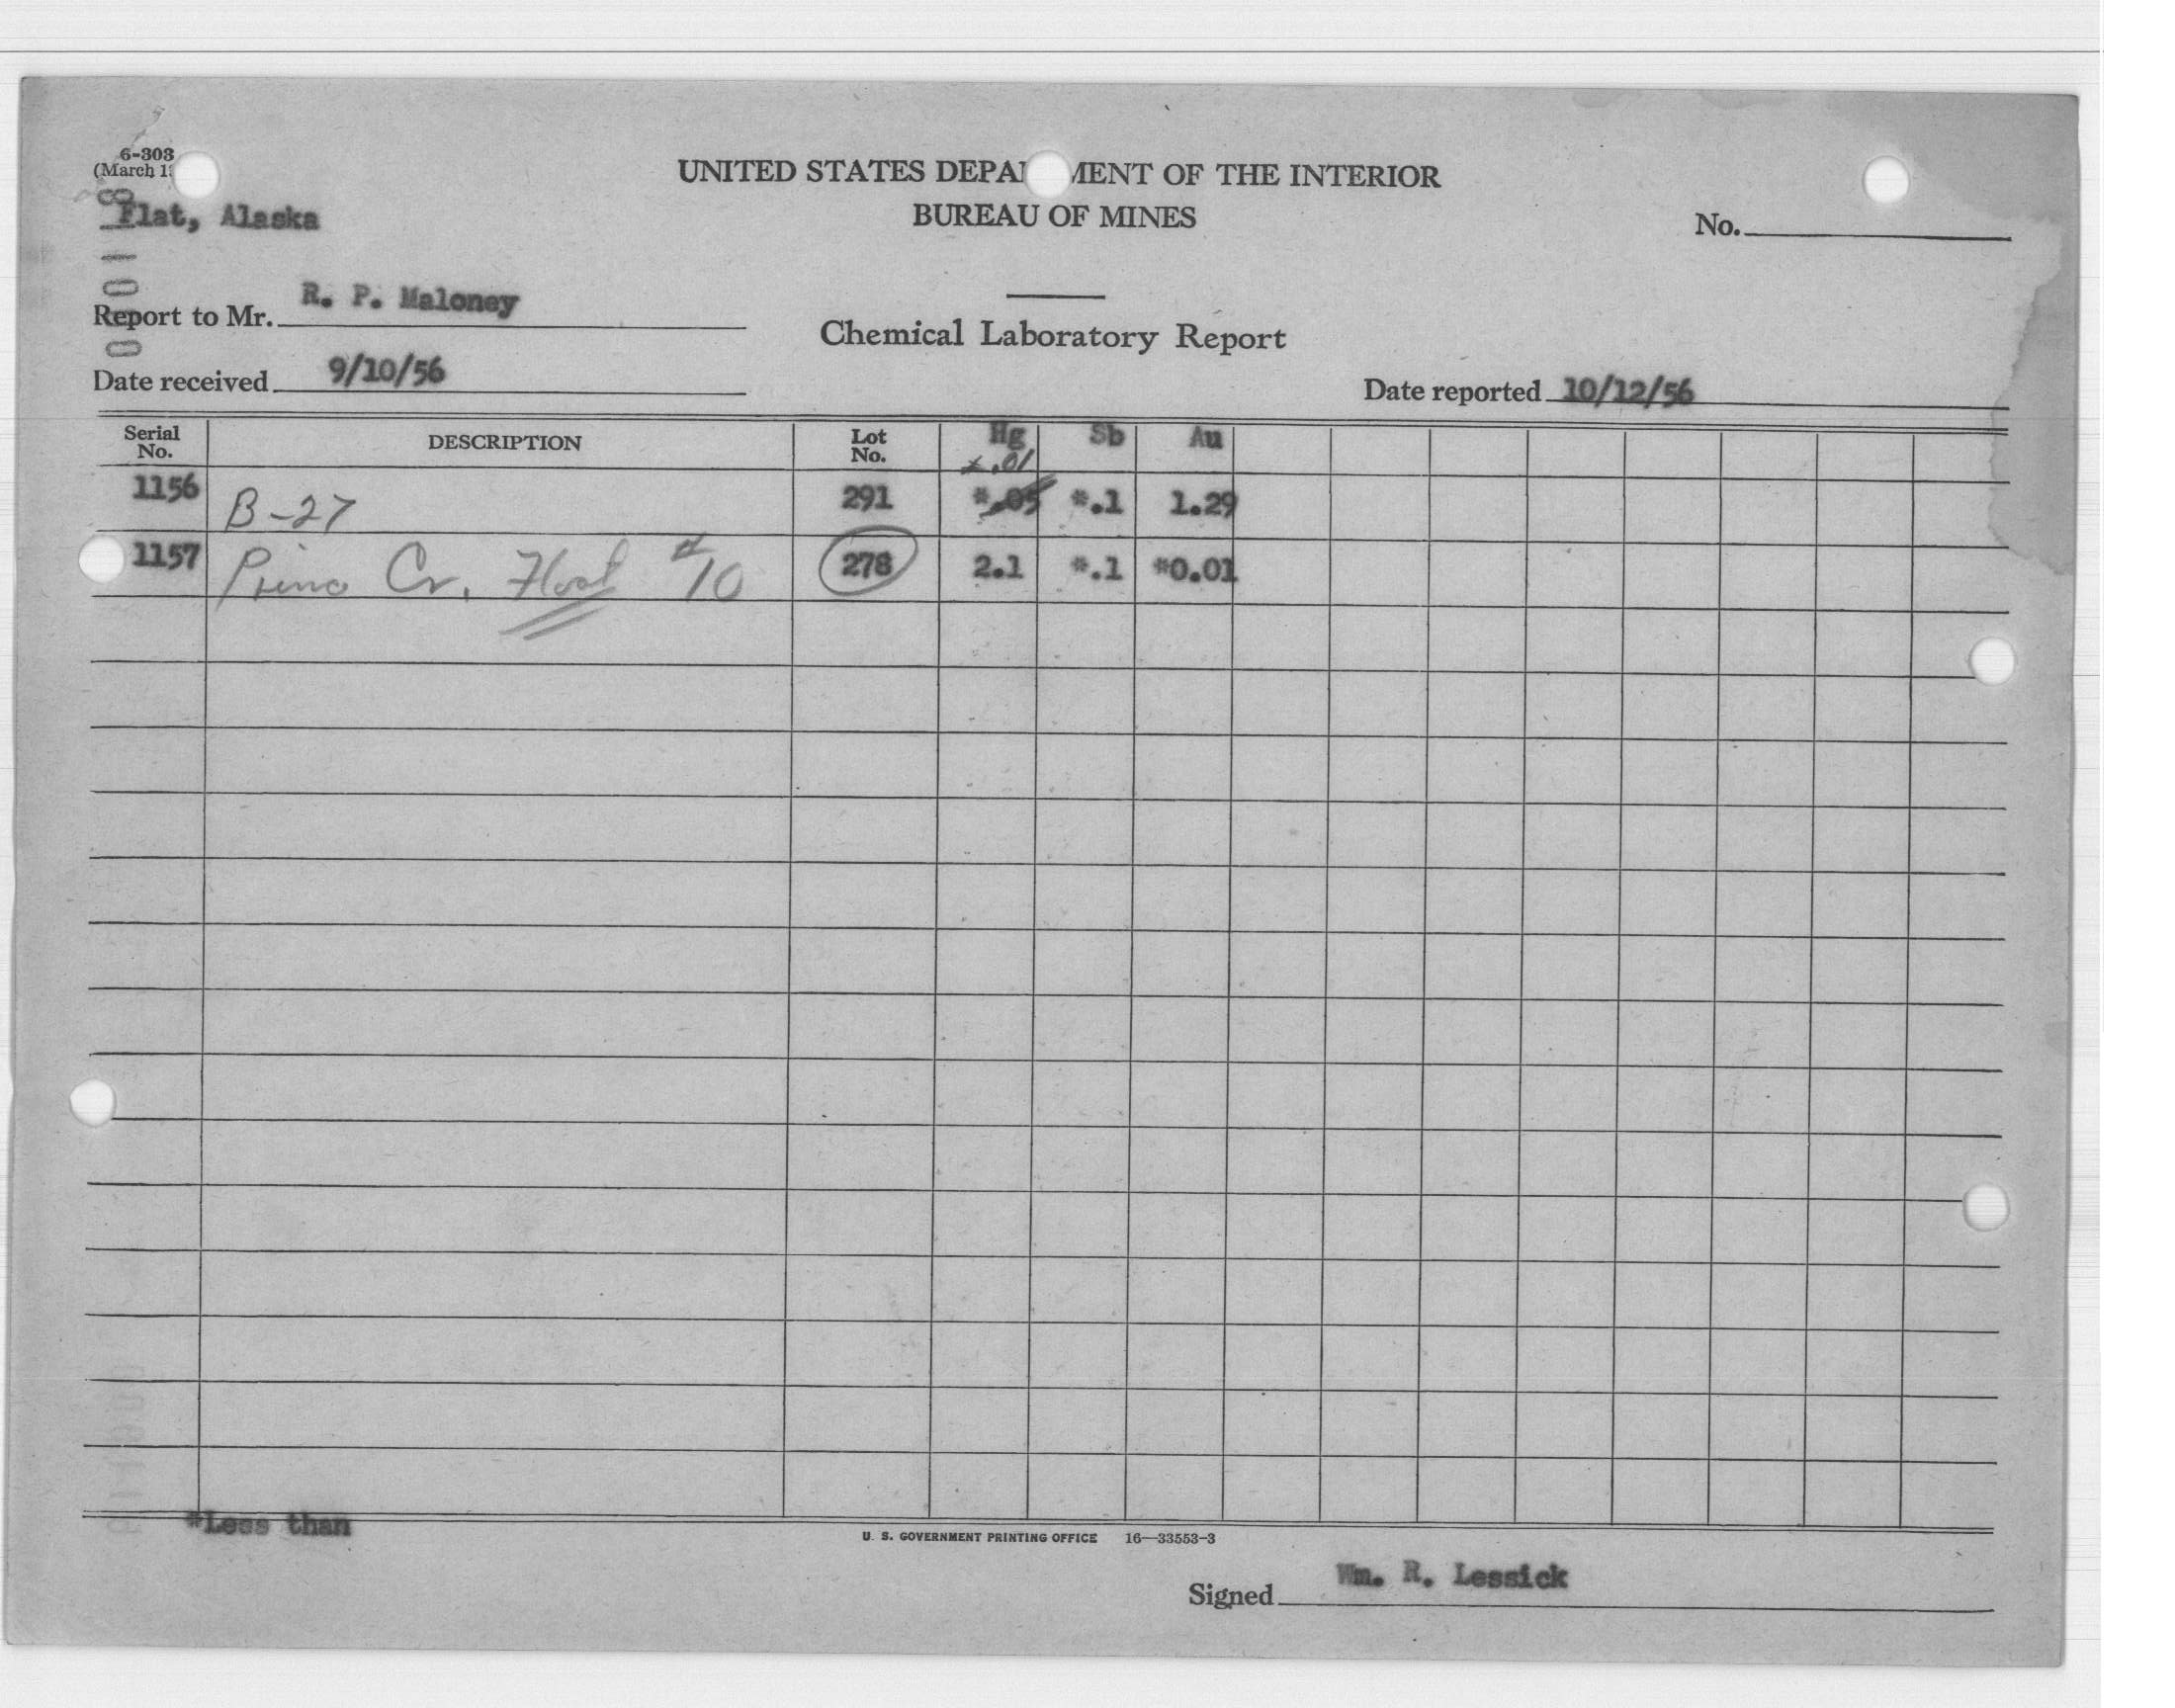 6-303
(March 1
Flat, Alaska
UNITED STATES DEPA MENT OF THE INTERIOR
BUREAU OF MINES
No.
Report to Mr. R. P. Maloney
Chemical Laboratory Report
Date received 9/10/56
Date reported 10/12/56
Serial No. DESCRIPTION Lot No. Hg Sb Au
*.01
1156 B-27 291 *.05 *.1 1.29
1157 Cr. Float #10 278 2.1 *.1 *0.01
*Less than
U. S. GOVERNMENT PRINTING OFFICE 16—33553-3
Signed Wm. R. Lessick